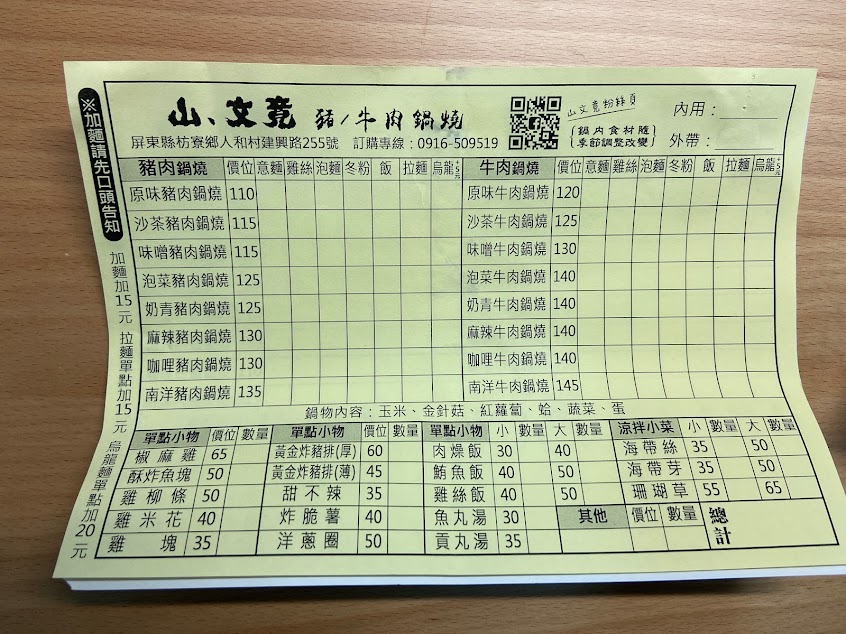 山、文竟 豬/牛肉鍋燒
山文竟粉絲頁
(鍋內食材隨季節調整改變)
內用：
外帶：
屏東縣枋寮鄉人和村建興路255號 訂購專線：0916-509519
※加麵請先口頭告知
加麵加15元 拉麵單點加15元 烏龍麵單點加20元
豬肉鍋燒 價位 意麵 雞絲 泡麵 冬粉 飯 拉麵 烏龍+5元
原味豬肉鍋燒 110
沙茶豬肉鍋燒 115
味噌豬肉鍋燒 115
泡菜豬肉鍋燒 125
奶青豬肉鍋燒 125
麻辣豬肉鍋燒 130
咖哩豬肉鍋燒 130
南洋豬肉鍋燒 135
牛肉鍋燒 價位 意麵 雞絲 泡麵 冬粉 飯 拉麵 烏龍+5元
原味牛肉鍋燒 120
沙茶牛肉鍋燒 125
味噌牛肉鍋燒 130
泡菜牛肉鍋燒 140
奶青牛肉鍋燒 140
麻辣牛肉鍋燒 140
咖哩牛肉鍋燒 140
南洋牛肉鍋燒 145
鍋物內容：玉米、金針菇、紅蘿蔔、蛤、蔬菜、蛋
單點小物 價位 數量
椒麻雞 65
酥炸魚塊 50
雞柳條 50
雞米花 40
雞塊 35
單點小物 價位 數量
黃金炸豬排(厚) 60
黃金炸豬排(薄) 45
甜不辣 35
炸脆薯 40
洋蔥圈 50
單點小物 小 數量 大 數量
肉燥飯 30 40
鮪魚飯 40 50
雞絲飯 40 50
魚丸湯 30
貢丸湯 35
涼拌小菜 小 數量 大 數量
海帶絲 35 50
海帶芽 35 50
珊瑚草 55 65
其他 價位 數量
總計